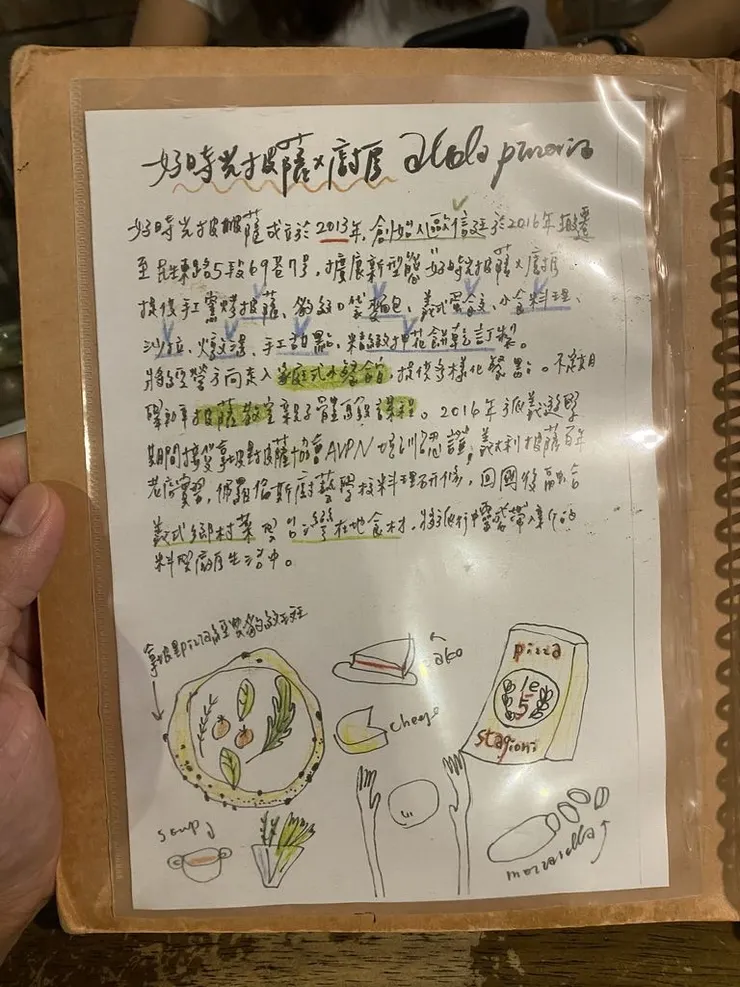 好時光披薩×廚房 aloola pizzeria
好時光披薩成立於2013年,創始人歐信廷於2016年搬遷
至民生東路5段69巷7号,擴展新型態"好時光披薩×廚房
提供手工窯烤披薩、豹紋口袋麵包、義式蛋餃、小食料理、
沙拉、燉湯、手工甜點、精緻押花餅乾訂製。
將經營方向走入家庭式小餐館,提供多樣化餐點。不定期
舉辦披薩教室親子體驗課程。2016年於義遊學
期間接受拿坡里披薩協會AVPN培訓認證,義大利披薩百年
老店實習,佛羅倫斯廚藝學校料理研修,回國後融合
義式鄉村菜與台灣在地食材,將旅行中靈感帶入新的
料理廚房生活中。
拿坡里pizza的豹紋斑
cake
cheese
pizza
le
5
stagioni
soup
mozzarella